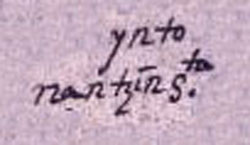 ynto
nantzīn s.ta